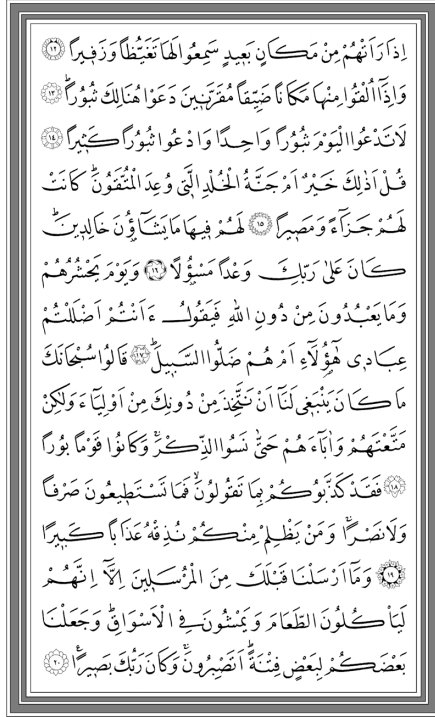 اِذَا رَاَتْهُمْ مِنْ مَكَانٍ بَعٖيدٍ سَمِعُوا لَهَا تَغَيُّظاً وَزَفٖيراً ﴿١٢﴾
وَاِذَٓا اُلْقُوا مِنْهَا مَكَاناً ضَيِّقاً مُقَرَّنٖينَ دَعَوْا هُنَالِكَ ثُبُوراًؕ ﴿١٣﴾
لَا تَدْعُوا الْيَوْمَ ثُبُوراً وَاحِداً وَادْعُوا ثُبُوراً كَثٖيراً ﴿١٤﴾
قُلْ اَذٰلِكَ خَيْرٌ اَمْ جَنَّةُ الْخُلْدِ الَّتٖى وُعِدَ الْمُتَّقُونَؕ كَانَتْ
لَهُمْ جَزَٓاءً وَمَصٖيراً ﴿١٥﴾ لَهُمْ فٖيهَا مَا يَشَٓاؤُ۫نَ خَالِدٖينَؕ
كَانَ عَلٰى رَبِّكَ وَعْداً مَسْؤُ۫لاً ﴿١٦﴾ وَيَوْمَ يَحْشُرُهُمْ
وَمَا يَعْبُدُونَ مِنْ دُونِ اللّٰهِ فَيَقُولُ ءَاَنْتُمْ اَضْلَلْتُمْ
عِبَادٖى هٰٓؤُ۬لَٓاءِ اَمْ هُمْ ضَلُّوا السَّبٖيلَؕ ﴿١٧﴾ قَالُوا سُبْحَانَكَ
مَا كَانَ يَنْبَغٖى لَنَٓا اَنْ نَتَّخِذَ مِنْ دُونِكَ مِنْ اَوْلِيَٓاءَ وَلٰكِنْ
مَتَّعْتَهُمْ وَاٰبَٓاءَهُمْ حَتّٰى نَسُوا الذِّكْرَۚ وَكَانُوا قَوْماً بُوراً
﴿١٨﴾ فَقَدْ كَذَّبُوكُمْ بِمَا تَقُولُونَۙ فَمَا تَسْتَطٖيعُونَ صَرْفاً
وَلَا نَصْراًۚ وَمَنْ يَظْلِمْ مِنْكُمْ نُذِقْهُ عَذَاباً كَبٖيراً
﴿١٩﴾ وَمَٓا اَرْسَلْنَا قَبْلَكَ مِنَ الْمُرْسَلٖينَ اِلَّٓا اِنَّهُمْ
لَيَأْكُلُونَ الطَّعَامَ وَيَمْشُونَ فِى الْاَسْوَاقِؕ وَجَعَلْنَا
بَعْضَكُمْ لِبَعْضٍ فِتْنَةًؕ اَتَصْبِرُونَۚ وَكَانَ رَبُّكَ بَصٖيراًࣖ ﴿٢٠﴾